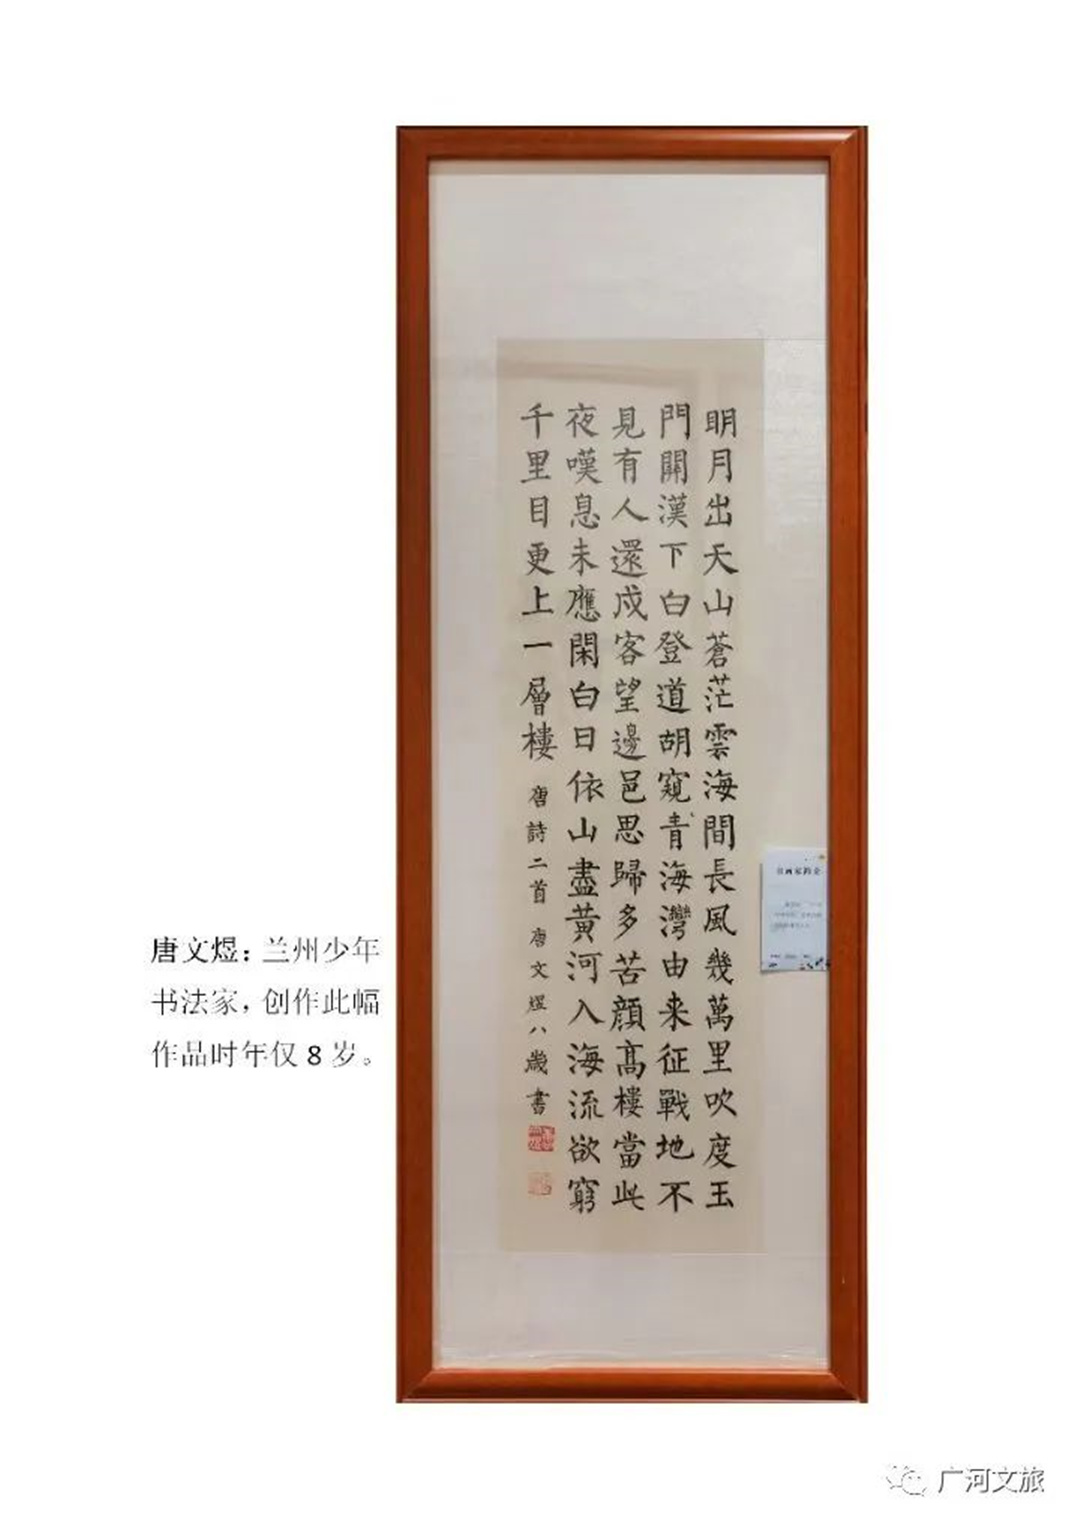 明月出天山蒼茫雲海間長風幾萬里吹度玉
門關漢下白登道胡窺青海灣由来征戰地不
見有人還戍客望邊邑思歸多苦顏高樓當此
夜嘆息未應閑白日依山盡黃河入海流欲窮
千里目更上一層樓 唐詩二首 唐文煜八歲書
唐文煜：兰州少年
书法家，创作此幅
作品时年仅 8 岁。
广河文旅